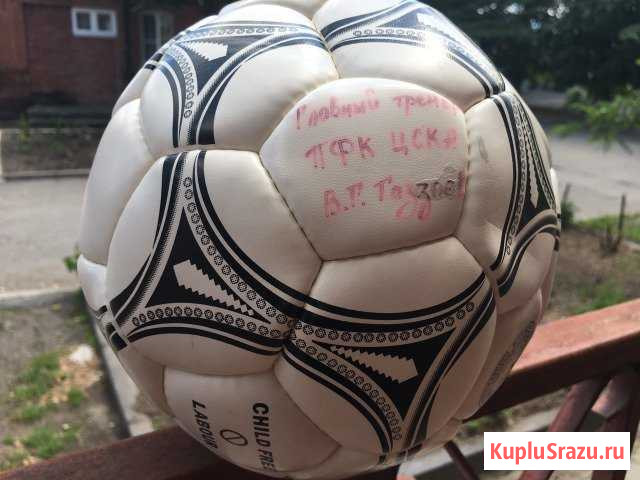 Главный тренер
ПФК ЦСКА
В.Г. Газзаев
CHILD FREE
LABOUR
KupluSrazu.ru